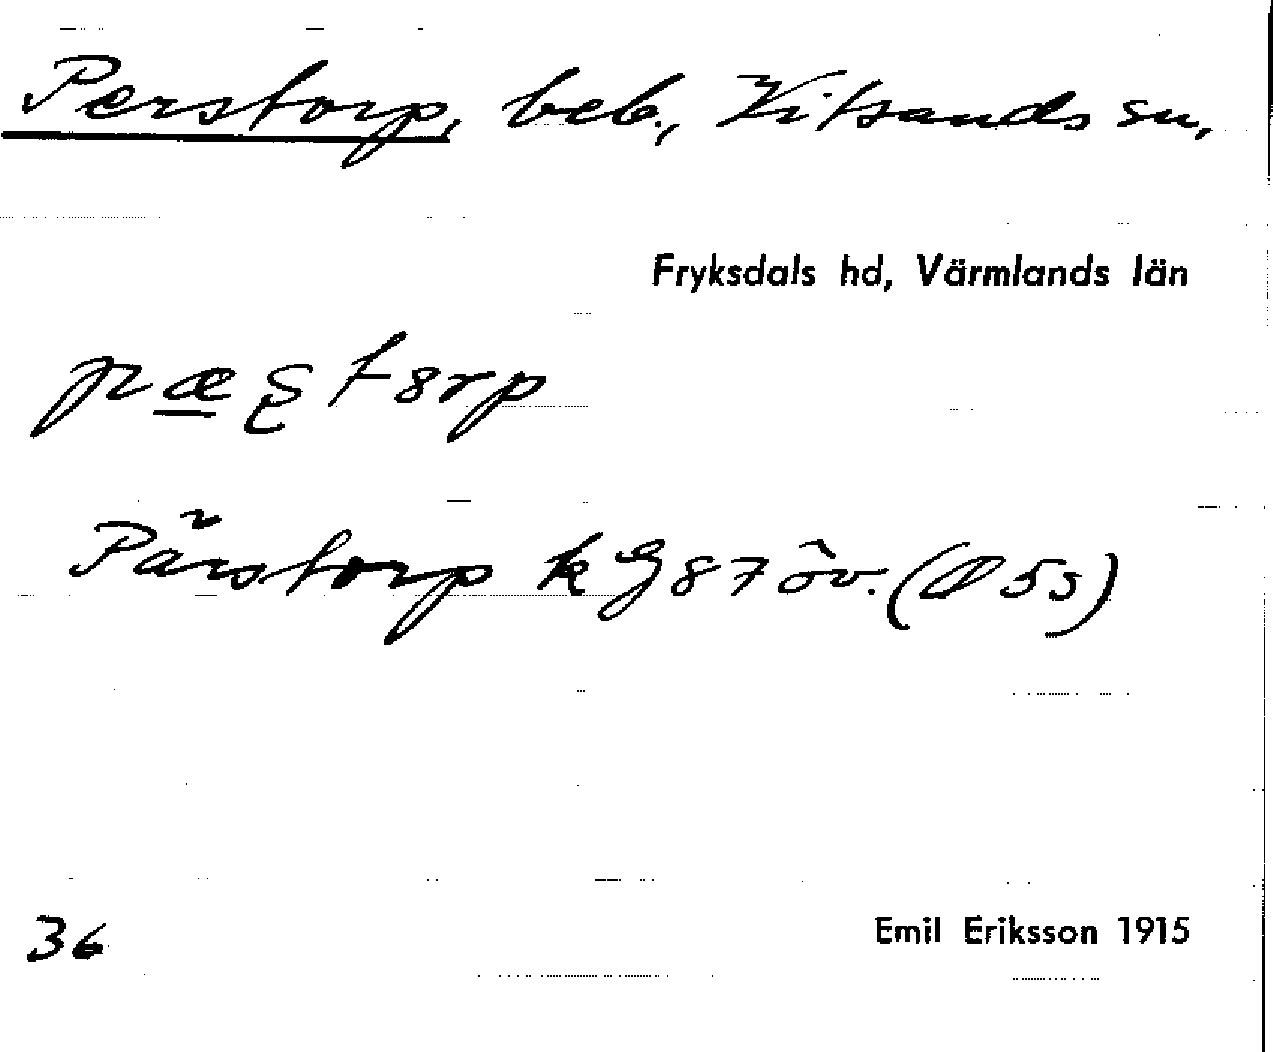 Perstorp, beb., Vitsands sn,
Fryksdals hd, Värmlands län
Pärstorp k G 87 öv. (Ø 5s)
36
Emil Eriksson 1915